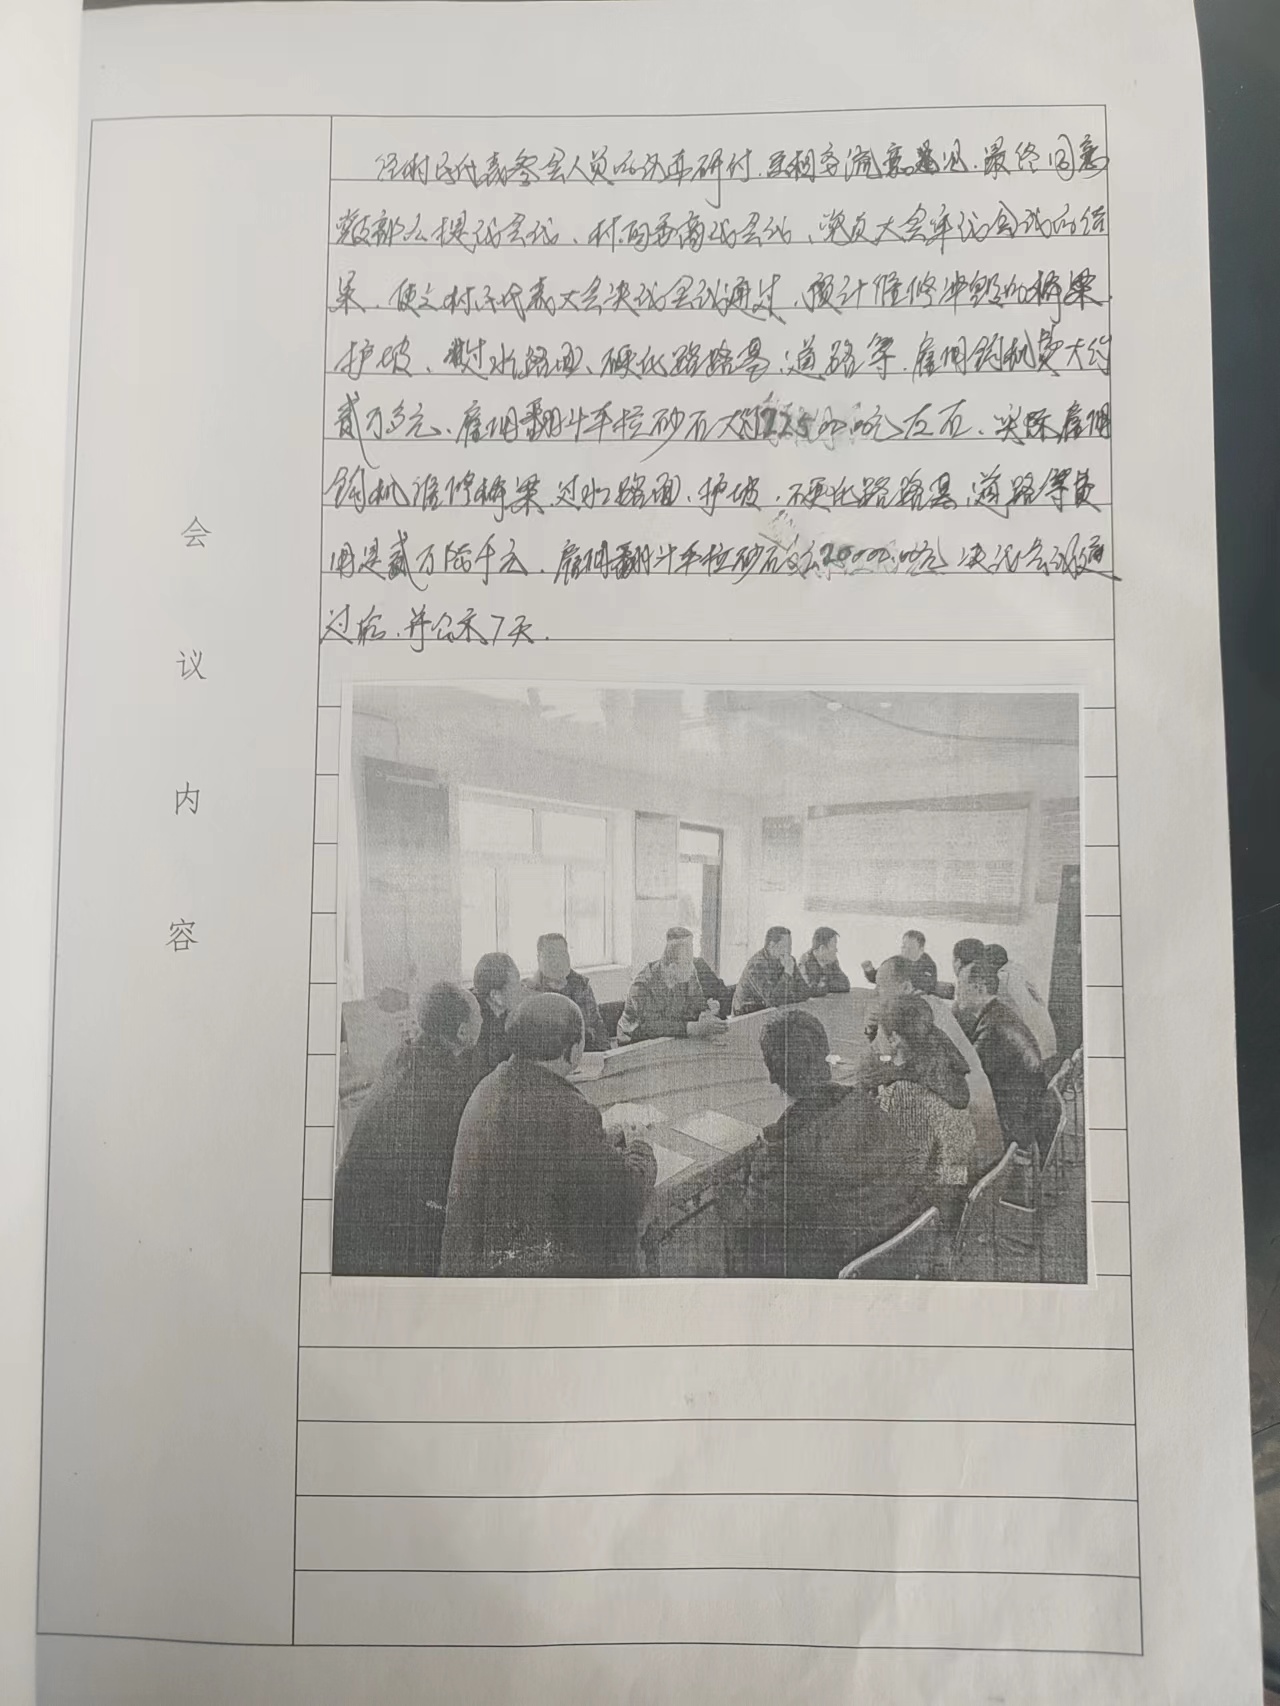 经村民代表参会人员的认真研讨.互相交流意见.最终同意
党支部公提议会议、村两委商议会议、党员大会审议会议的结
果.使之村民代表大会决议会议通过、预计维修冲毁的桥梁.
护坡、过水路面、硬化路路基、道路等.雇佣钩机费大约
贰万多元、雇佣翻斗车拉砂石大约 元左右、实际雇佣
钩机维修桥梁.过水路面、护坡、硬化路路基、道路等费
用是贰万陆千元.雇佣翻斗车拉砂石 20000.00元 决议会议通
过后.并公示7天.
会
议
内
容